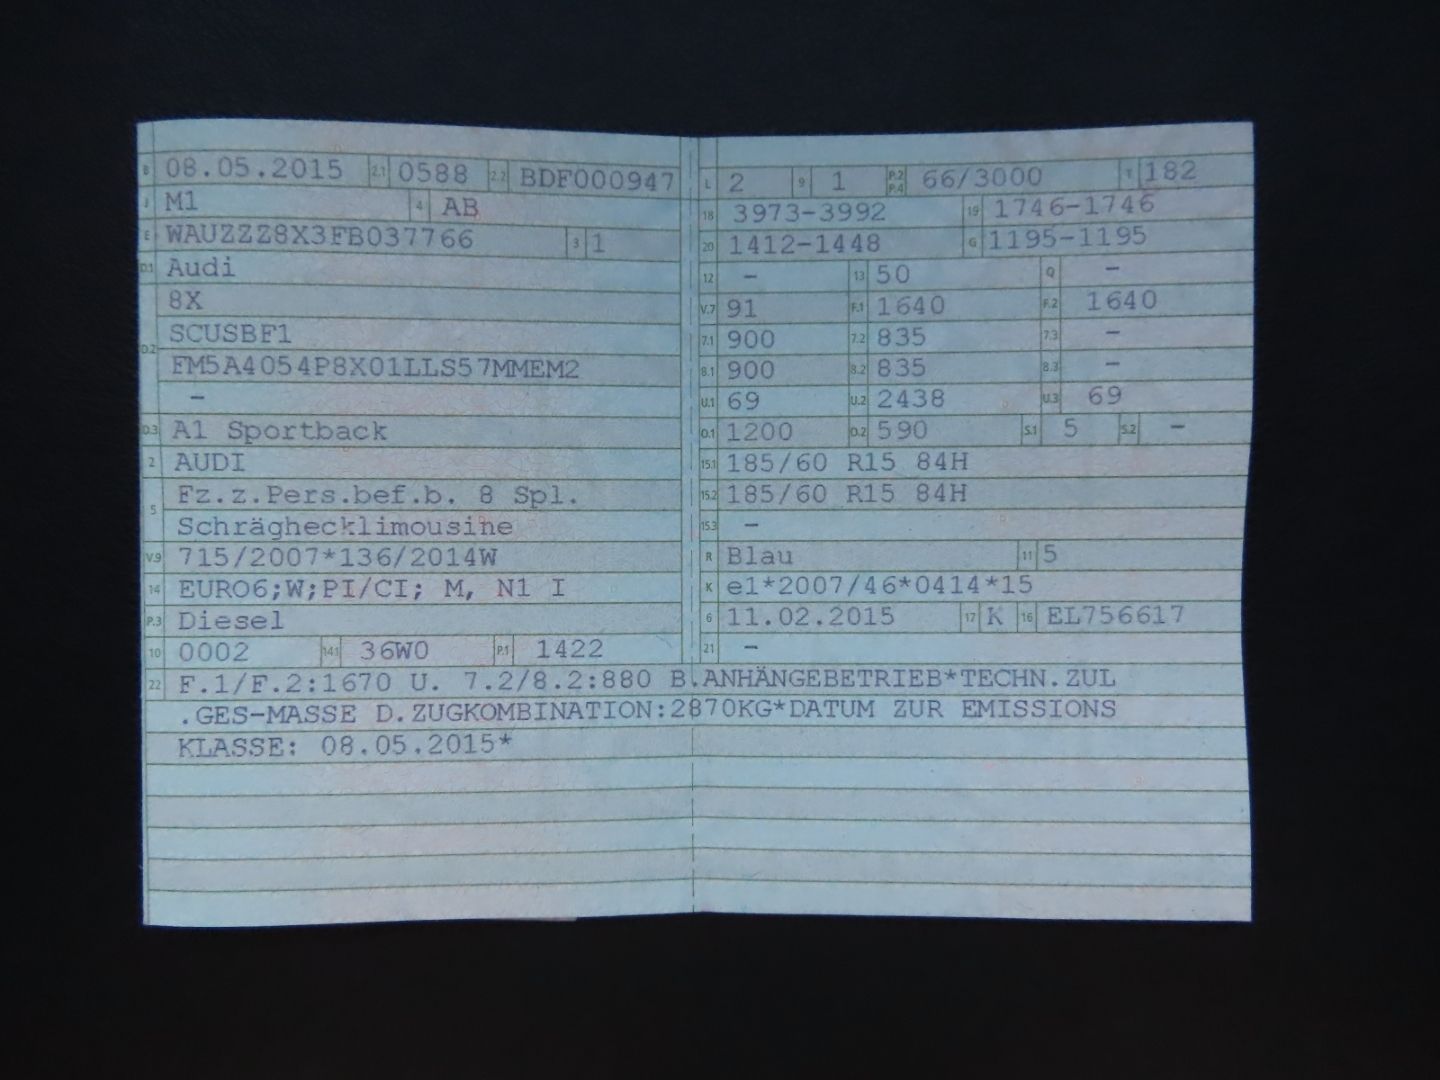 B 08.05.2015 2.1 0588 2.2 BDF000947
J M1 4 AB
E WAUZZZ8X3FB037766 3 1
D.1 Audi
8X
D.2 SCUSBF1
FM5A4054P8X01LLS57MMEM2
-
D.3 A1 Sportback
2 AUDI
5 Fz.z.Pers.bef.b. 8 Spl.
Schräghecklimousine
V.9 715/2007*136/2014W
14 EURO6;W;PI/CI; M, N1 I
P.3 Diesel
10 0002 14.1 36W0 P.1 1422
L 2 9 1 P.2 P.4 66/3000 T 182
18 3973-3992 19 1746-1746
20 1412-1448 G 1195-1195
12 - 13 50 Q -
V.7 91 F.1 1640 F.2 1640
7.1 900 7.2 835 7.3 -
8.1 900 8.2 835 8.3 -
U.1 69 U.2 2438 U.3 69
O.1 1200 O.2 590 S.1 5 S.2 -
15.1 185/60 R15 84H
15.2 185/60 R15 84H
15.3 -
R Blau 11 5
K e1*2007/46*0414*15
6 11.02.2015 17 K 16 EL756617
21 -
22 F.1/F.2:1670 U. 7.2/8.2:880 B.ANHÄNGEBETRIEB*TECHN.ZUL
.GES-MASSE D.ZUGKOMBINATION:2870KG*DATUM ZUR EMISSIONS
KLASSE: 08.05.2015*